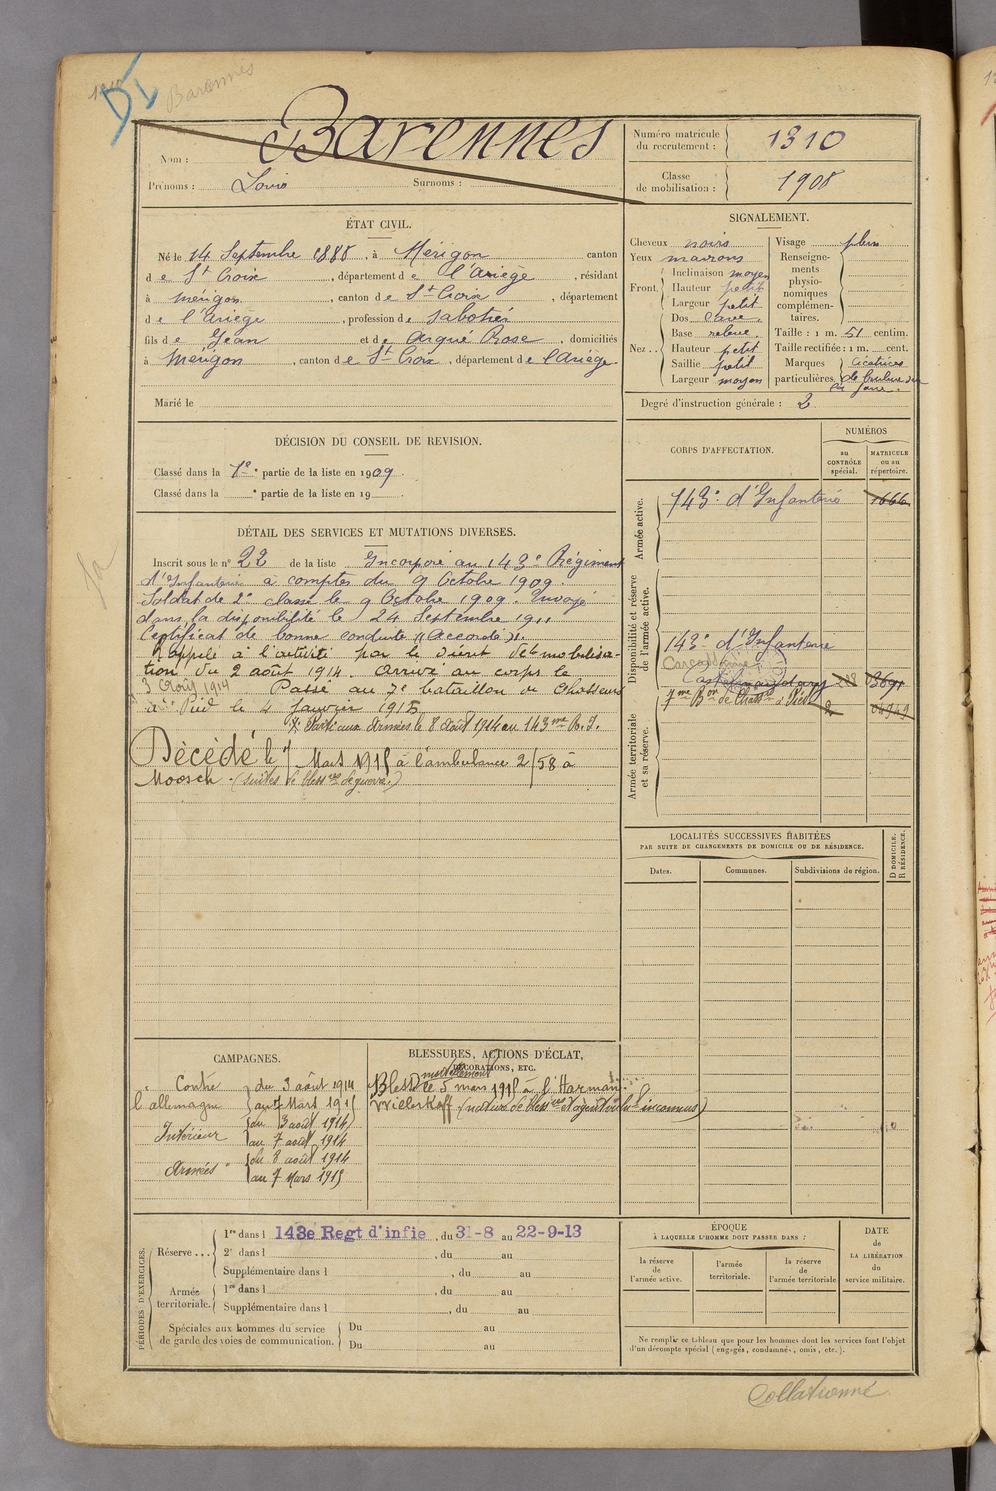 DI
Barennes
Nom : Barennes
Prénoms : Louis Surnoms :
Numéro matricule du recrutement : 1310
Classe de mobilisation : 1908
ÉTAT CIVIL.
Né le 14 Septembre 1888, à Mérigon canton
de St Croix, département de l'Ariège, résidant
à Mérigon, canton de St Croix, département
de l'Ariège, profession de Sabotier
fils de Jean et de Argué Rose, domiciliés
à Mérigon, canton de St Croix, département de l'Ariège.
Marié le
SIGNALEMENT.
Cheveux noirs
Yeux marrons
Front. Inclinaison moyen
Hauteur petit
Largeur petit
Nez.. Dos cave.
Base relevé
Hauteur petit
Saillie petit
Largeur moyen
Visage plein
Renseignements physionomiques complémentaires.
Taille : 1 m. 51 centim.
Taille rectifiée : 1 m. cent.
Marques particulières Cicatrices de brulure sur la joue.
Degré d'instruction générale : 2
DÉCISION DU CONSEIL DE REVISION.
Classé dans la 1e partie de la liste en 1909.
Classé dans la e partie de la liste en 19
DÉTAIL DES SERVICES ET MUTATIONS DIVERSES.
Inscrit sous le n° 22 de la liste Incorporé au 143e Régiment
d'Infanterie à compter du 9 Octobre 1909.
Soldat de 2e classe le 9 Octobre 1909. Envoyé
dans la disponibilité le 24 Septembre 1911
Certificat de bonne conduite "Accordé".
Rappelé à l'activité par le décret de mobilisa-
tion du 2 août 1914. Arrivé au corps le
3 Août 1914 Passé au 7e bataillon de Chasseurs
à Pied le 4 Janvier 1915
Parti aux Armées le 8 août 1914 au 143me R.I.
Décédé le 7 Mars 1915 à l'ambulance 2/58 à
Moosch (suites de bless res de guerre.)
CORPS D'AFFECTATION.
NUMÉROS
au CONTRÔLE spécial.
MATRICULE ou au répertoire.
Armée active.
143e d'Infanterie 1666
Disponibilité et réserve de l'armée active.
143e d'Infanterie
Castelnaudary 3691
7me Bon de Chass à Pied 2 04949
Armée territoriale et sa réserve.
LOCALITÉS SUCCESSIVES HABITÉES
PAR SUITE DE CHANGEMENTS DE DOMICILE OU DE RÉSIDENCE.
Dates. Communes. Subdivisions de région.
D DOMICILE. R RÉSIDENCE.
CAMPAGNES.
Contre l'allemagne du 3 août 1914
au 7 Mars 1915
Intérieur du 3 août 1914
au 7 août 1914
Armées du 8 août 1914
au 7 Mars 1915
BLESSURES, ACTIONS D'ÉCLAT,
DÉCORATIONS, ETC.
Blessé mortellement le 5 mars 1915 à l'Harman-
Willerkoff (nature de bless res et agent vul t inconnus)
PÉRIODES D'EXERCICES.
Réserve... 1re dans l 143e Regt d'infie, du 31-8 au 22-9-13
2e dans l , du au
Supplémentaire dans l , du au
Armée territoriale. 1re dans l , du au
Supplémentaire dans l , du au
Spéciales aux hommes du service de garde des voies de communication. Du au
Du au
ÉPOQUE
À LAQUELLE L'HOMME DOIT PASSER DANS :
la réserve de l'armée active.
l'armée territoriale.
la réserve de l'armée territoriale
DATE de LA LIBÉRATION du service militaire.
Ne remplir ce tableau que pour les hommes dont les services font l'objet
d'un décompte spécial (engagés, condamnés, omis, etc.).
Collationné